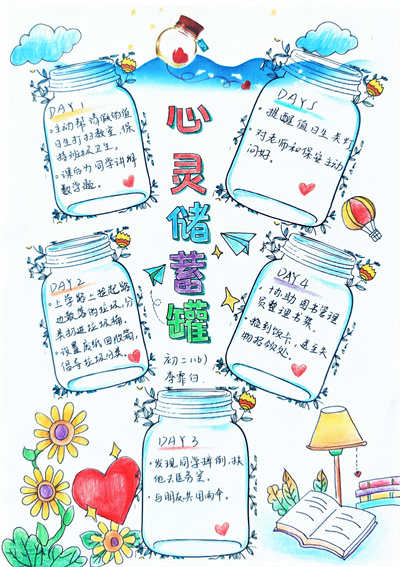 心灵储蓄罐
初二(16)
DAY 1
·主动帮请假的值
日生打扫教室,保
持班级卫生。
·课后为同学讲解
数学题。
DAY 2
·上学路上捡起路
边散落的垃圾,分
类扔进垃圾桶。
·设置废纸回收箱,
倡导垃圾分类。
DAY 3
·发现同学摔倒,扶
他去医务室。
·与朋友共用雨伞。
DAY 4
·协助图书管理
员整理书架。
·捡到饭卡,送至失
物招领处。
DAY 5
·提醒值日生关灯
·对老师和保安主动
问好。